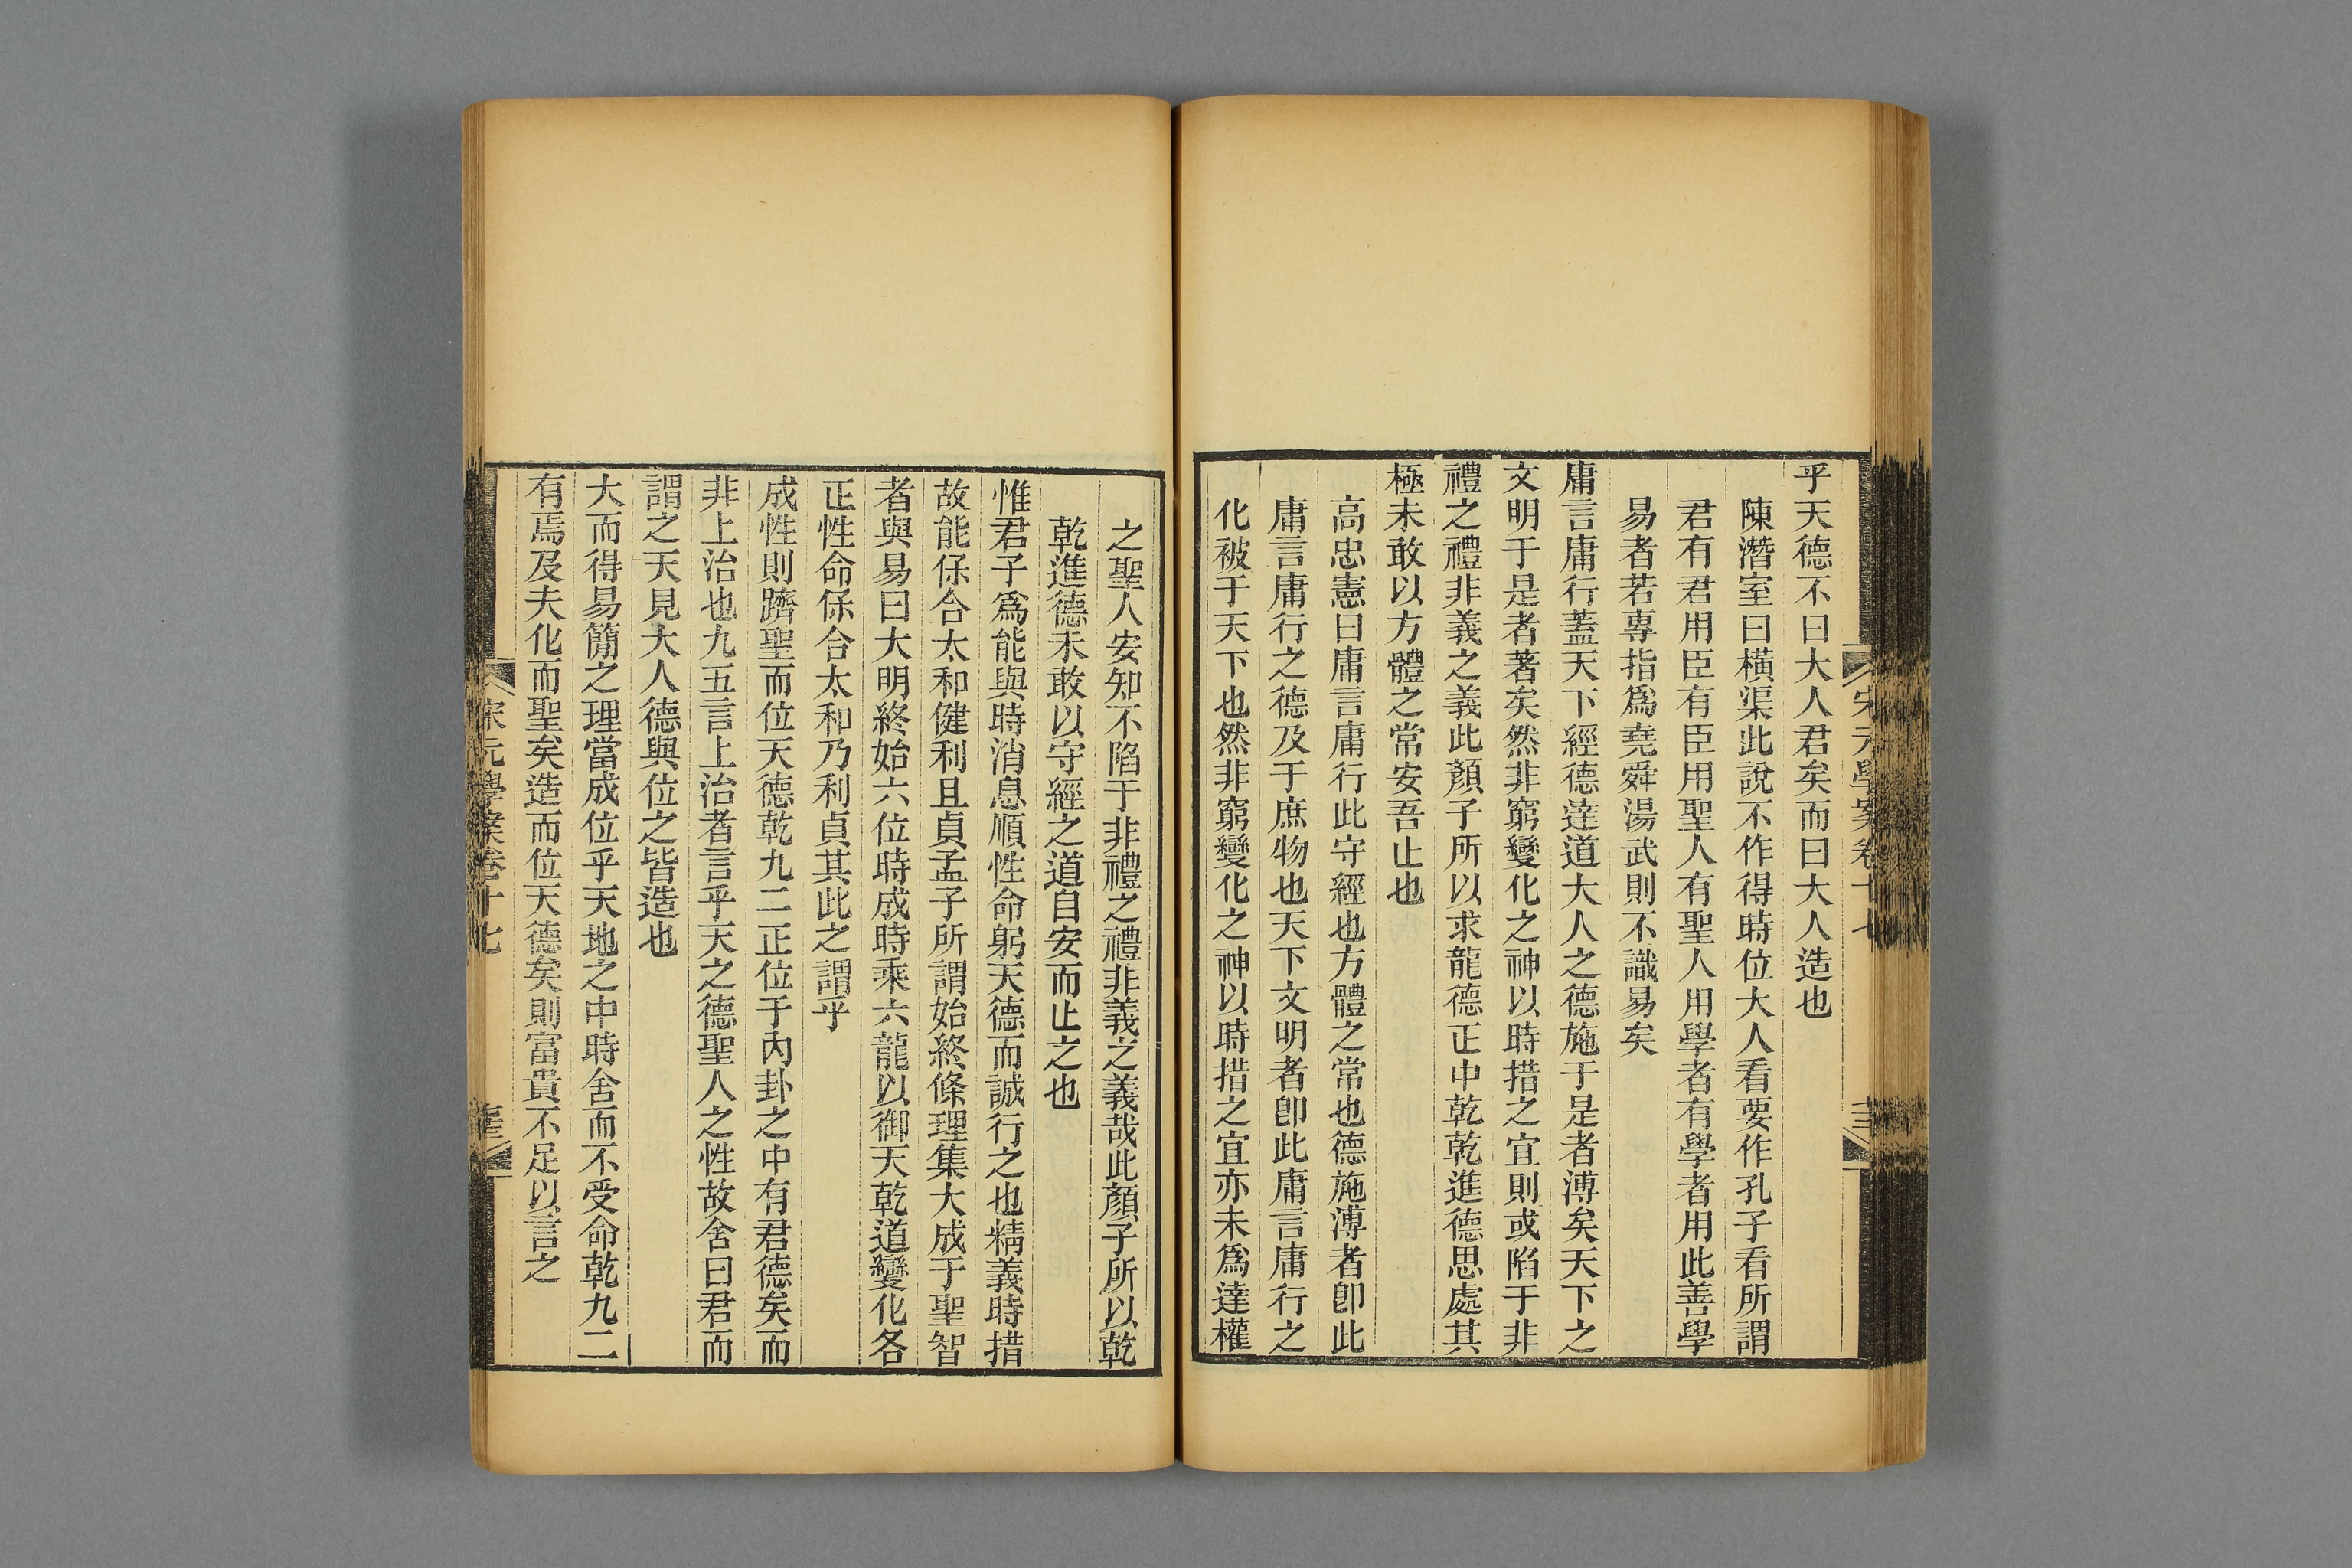 乎天德不曰大人君矣而曰大人造也
陳潛室曰橫渠此說不作得時位大人看要作孔子看所謂
君有君用臣有臣用聖人有聖人用學者有學者用此善學
易者若專指爲堯舜湯武則不識易矣
庸言庸行蓋天下經德達道大人之德施于是者溥矣天下之
文明于是者著矣然非窮變化之神以時措之宜則或陷于非
禮之禮非義之義此顏子所以求龍德正中乾乾進德思處其
極未敢以方體之常安吾止也
高忠憲曰庸言庸行此守經也方體之常也德施溥者卽此
庸言庸行之德及于庶物也天下文明者卽此庸言庸行之
化被于天下也然非窮變化之神以時措之宜亦未爲達權
之聖人安知不陷于非禮之禮非義之義哉此顏子所以乾
乾進德未敢以守經之道自安而止之也
惟君子爲能與時消息順性命躬天德而誠行之也精義時措
故能保合太和健利且貞孟子所謂始終條理集大成于聖智
者與易曰大明終始六位時成時乘六龍以御天乾道變化各
正性命保合太和乃利貞其此之謂乎
成性則躋聖而位天德乾九二正位于內卦之中有君德矣而
非上治也九五言上治者言乎天之德聖人之性故舍曰君而
謂之天見大人德與位之皆造也
大而得易簡之理當成位乎天地之中時舍而不受命乾九二
有焉及夫化而聖矣造而位天德矣則富貴不足以言之
宋元學案卷十七